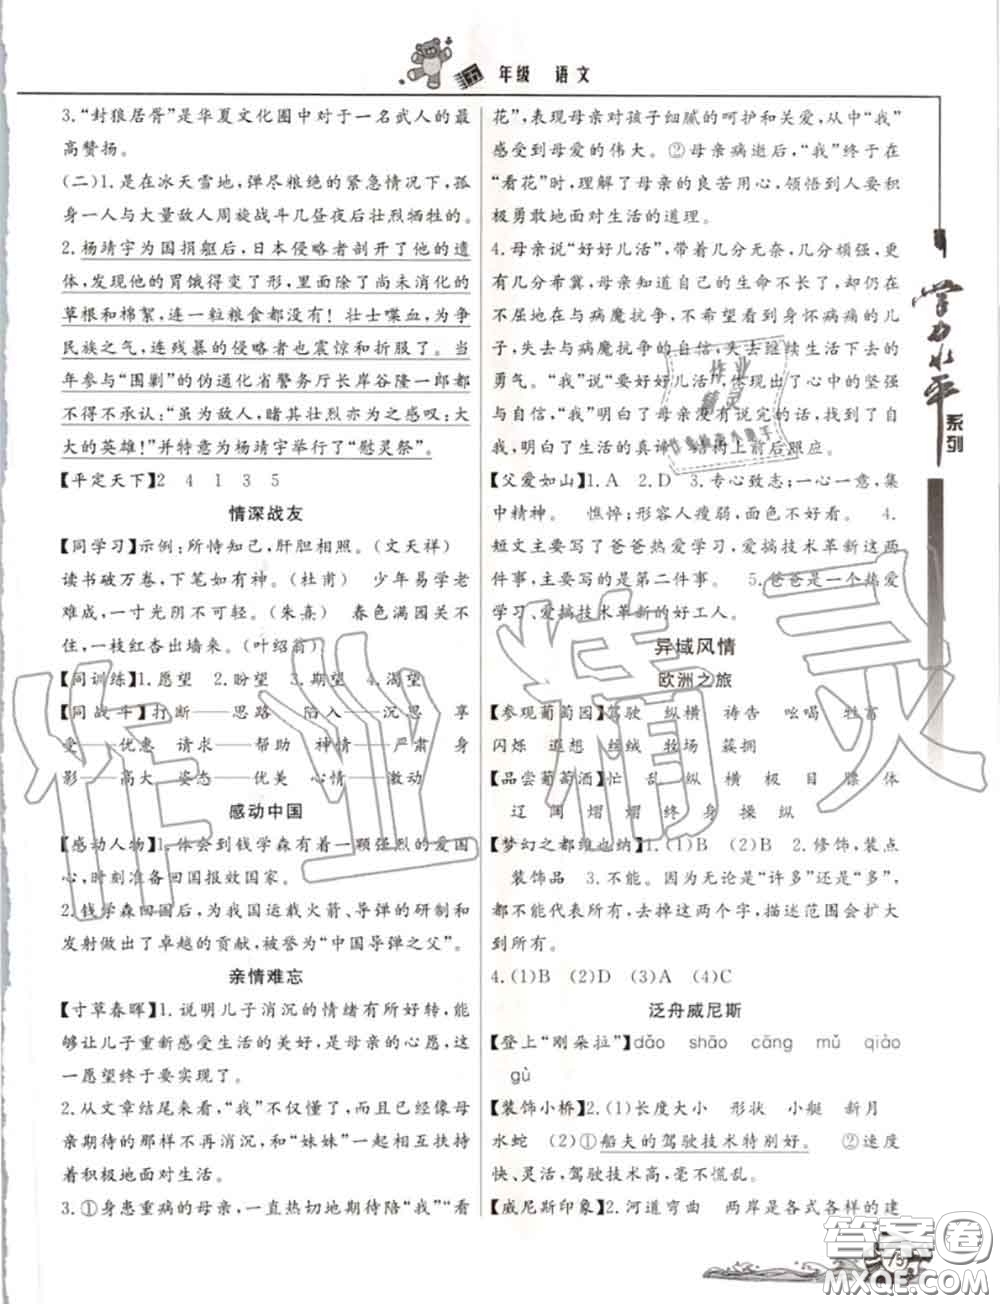 年级 语文
3.“封狼居胥”是华夏文化圈中对于一名武人的最
高赞扬。
(二)1.是在冰天雪地,弹尽粮绝的紧急情况下,孤
身一人与大量敌人周旋战斗几昼夜后壮烈牺牲的。
2.杨靖宇为国捐躯后,日本侵略者剖开了他的遗
体,发现他的胃饿得变了形,里面除了尚未消化的
草根和棉絮,连一粒粮食都没有!壮士喋血,为争
民族之气,连残暴的侵略者也震惊和折服了。当
年参与“围剿”的伪通化省警务厅长岸谷隆一郎都
不得不承认:“虽为敌人,睹其壮烈亦为之感叹:大
大的英雄!”并特意为杨靖宇举行了“慰灵祭”。
【平定天下】2 4 1 3 5
情深战友
【同学习】示例:所恃知己,肝胆相照。(文天祥)
读书破万卷,下笔如有神。(杜甫) 少年易学老
难成,一寸光阴不可轻。(朱熹) 春色满园关不
住,一枝红杏出墙来。(叶绍翁)
【同训练】1.愿望 2.盼望 3.期望 4.渴望
【同战斗】打断——思路 陷入——沉思 享
受——优惠 请求——帮助 神情——严肃 身
影——高大 姿态——优美 心情——激动
感动中国
【感动人物】1.体会到钱学森有着一颗强烈的爱国
心,时刻准备回国报效国家。
2.钱学森回国后,为我国运载火箭、导弹的研制和
发射做出了卓越的贡献,被誉为“中国导弹之父”。
亲情难忘
【寸草春晖】1.说明儿子消沉的情绪有所好转,能
够让儿子重新感受生活的美好,是母亲的心愿,这
一愿望终于要实现了。
2.从文章结尾来看,“我”不仅懂了,而且已经像母
亲期待的那样不再消沉,和“妹妹”一起相互扶持
着积极地面对生活。
3.①身患重病的母亲,一直热切地期待陪“我”“看
花”,表现母亲对孩子细腻的呵护和关爱,从中“我”
感受到母爱的伟大。②母亲病逝后,“我”终于在
“看花”时,理解了母亲的良苦用心,领悟到人要积
极勇敢地面对生活的道理。
4.母亲说“好好儿活”,带着几分无奈,几分顽强,更
有几分希冀,母亲知道自己的生命不长了,却仍在
不屈地在与病魔抗争,不希望看到身怀病痛的儿
子,失去与病魔抗争的自信,失去继续生活下去的
勇气。“我”说“要好好儿活”,体现了心中的坚强
与自信,“我”明白了母亲没有说完的话,找到了自
我,明白了生活的真谛,结构上前后照应。
【父爱如山】1.A 2.D 3.专心致志:一心一意,集
中精神。 憔悴:形容人瘦弱,面色不好看。 4.
短文主要写了爸爸热爱学习、爱搞技术革新这两
件事,主要写的是第二件事。 5.爸爸是一个热爱
学习、爱搞技术革新的好工人。
异域风情
欧洲之旅
【参观葡萄园】驾驶 纵横 祷告 吆喝 牲畜
闪烁 遐想 丝绒 牧场 簇拥
【品尝葡萄酒】忙 乱 纵 横 极 目 膘 体
辽 阔 熠 熠 终 身 操 纵
【梦幻之都维也纳】1.(1)B (2)B 2.修饰,装点
装饰品 3.不能。因为无论是“许多”还是“多”,
都不能代表所有,去掉这两个字,描述范围会扩大
到所有。
4.(1)B (2)D (3)A (4)C
泛舟威尼斯
【登上“刚朵拉”】dǎo shāo cāng mǔ qiào
gù
【装饰小桥】2.(1)长度大小 形状 小艇 新月
水蛇 (2)①船夫的驾驶技术特别好。 ②速度
快、灵活,驾驶技术高,毫不慌乱。
【威尼斯印象】2.河道弯曲 两岸是各式各样的建
学力水平
系列
作业
精灵
作业精灵
75
答案圈
MXQE.COM